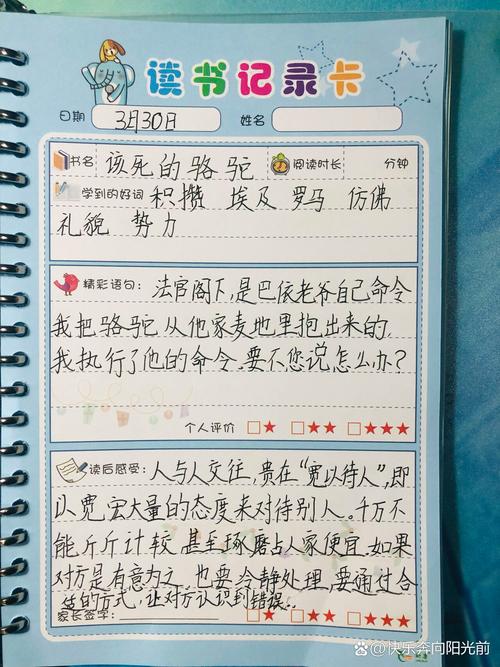 读书记录卡
日期 3月30日 姓名
书名 该死的骆驼 阅读时长 分钟
学到的好词 积攒 埃及 罗马 仿佛
礼貌 势力
精彩语句: 法官阁下,是巴依老爷自己命令
我把骆驼从他家麦地里抱出来的.
我执行了他的命令.要不您说怎么办?
个人评价 ★ ★★ ★★★
读后感受: 人与人交往,贵在“宽以待人”,即
以宽宏大量的态度来对待别人。千万不
能斤斤计较甚至琢磨占人家便宜.如果
对方是有意为之,也要冷静处理,要通过合
适的方式,让对方认识到错误..
家长签字: ★ ★★ ★★★
@快乐奔向阳光前